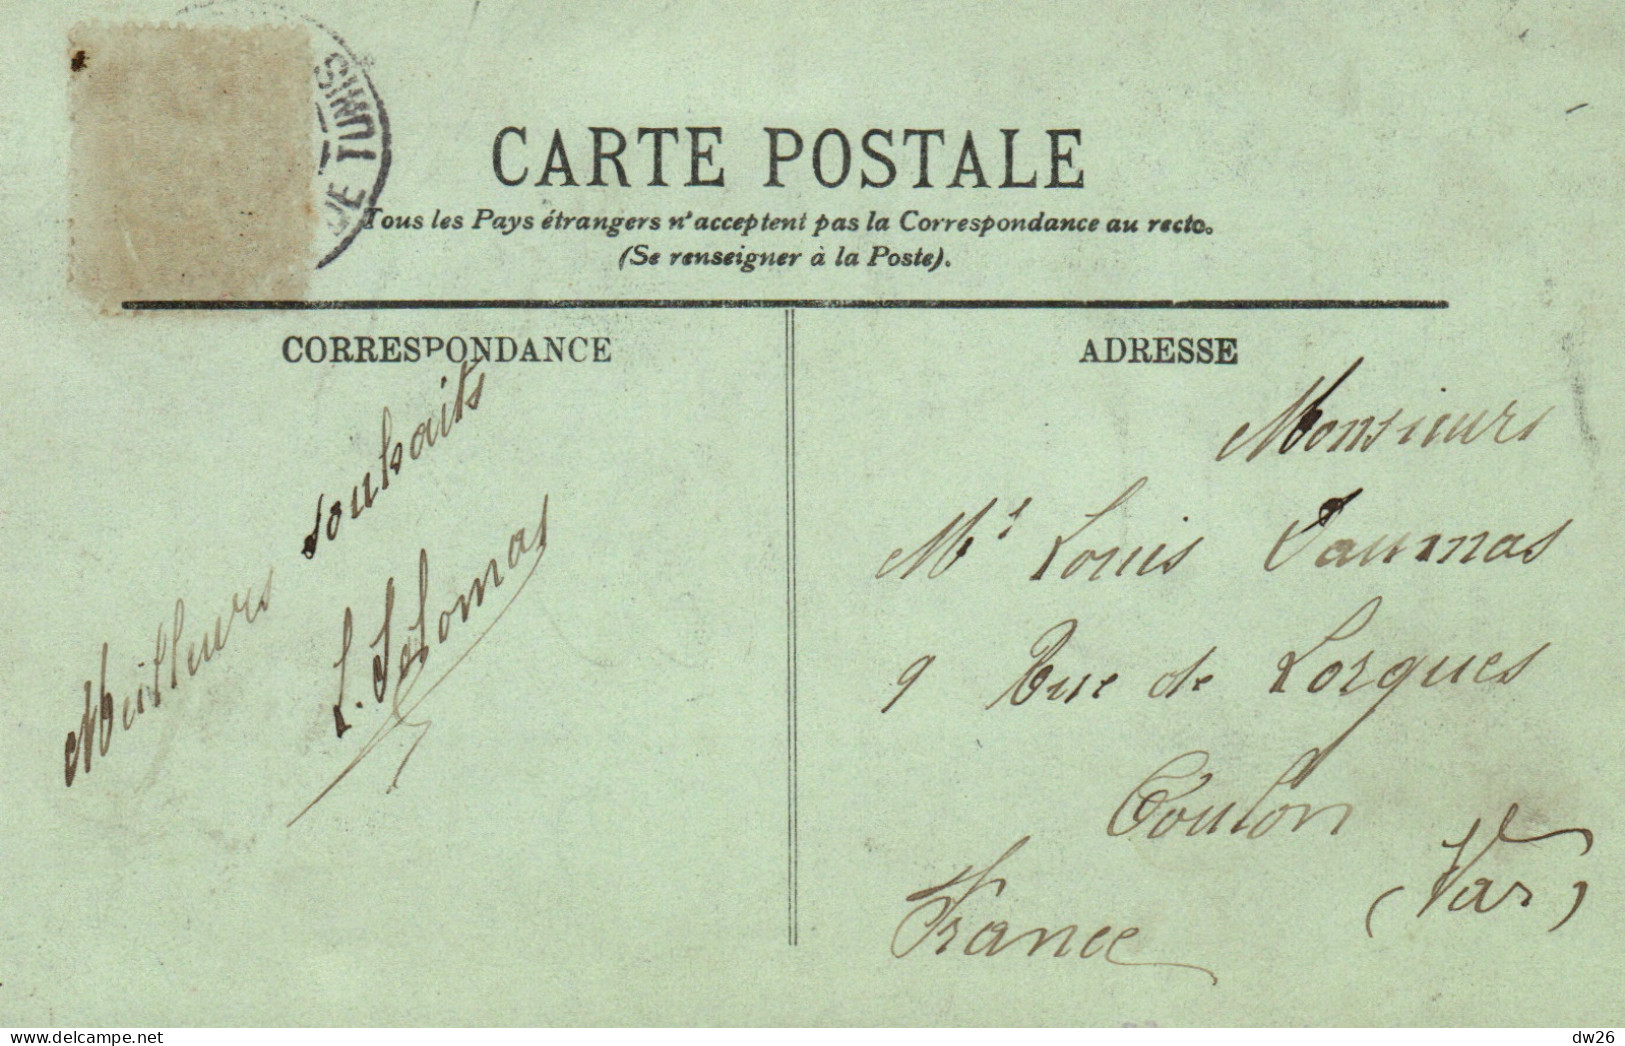 TUNIS
CARTE POSTALE
Tous les Pays étrangers n'acceptent pas la Correspondance au recto.
(Se renseigner à la Poste).
CORRESPONDANCE
Meilleurs souhaits
ADRESSE
Monsieurs
Mr Louis Daumas
9 Rue de Lorgues
Toulon
(Var)
France
dw26